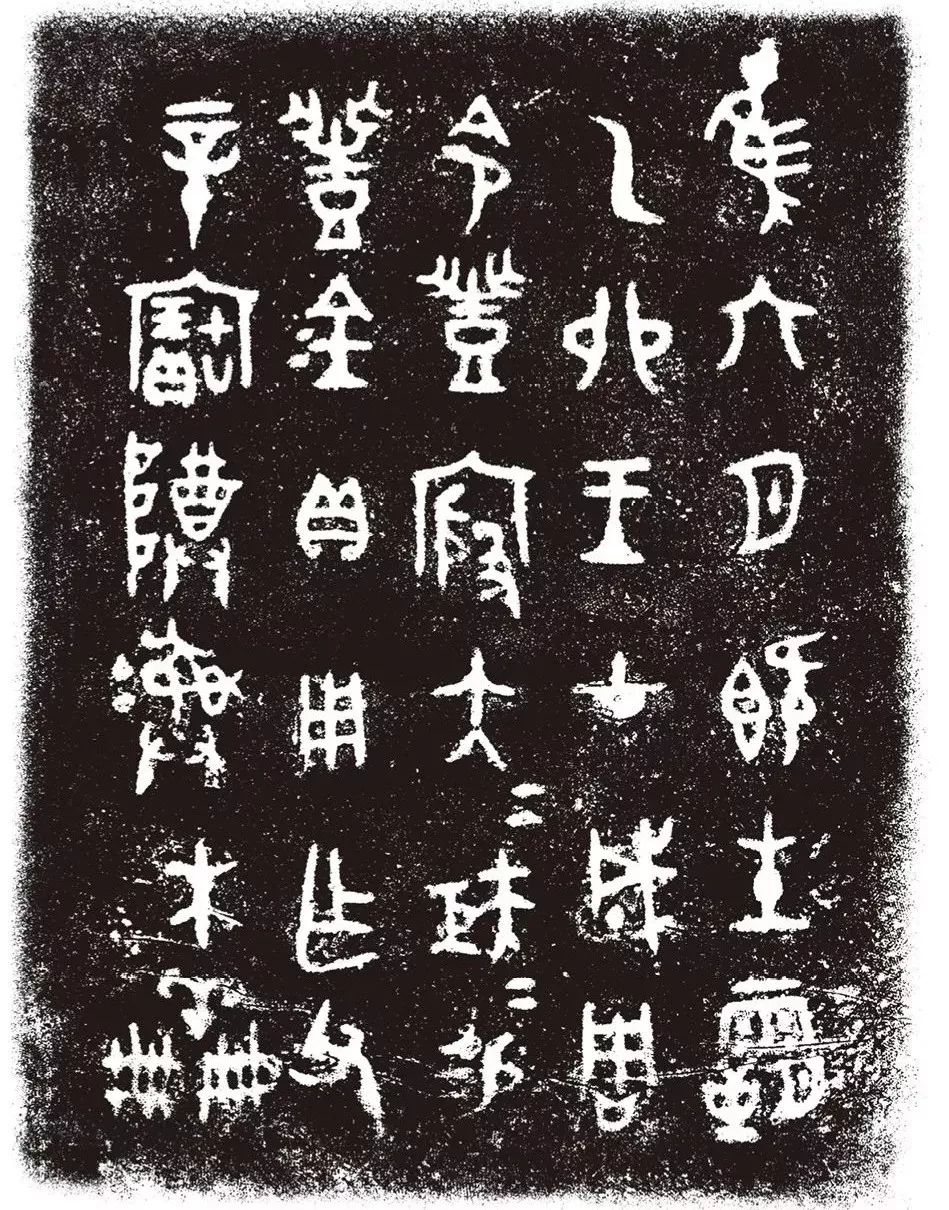 隹六月既生霸
乙卯王才成周
令豐𡫬大=矩=易
豐金貝用乍父
辛寶𨺅彝木羊冊冊